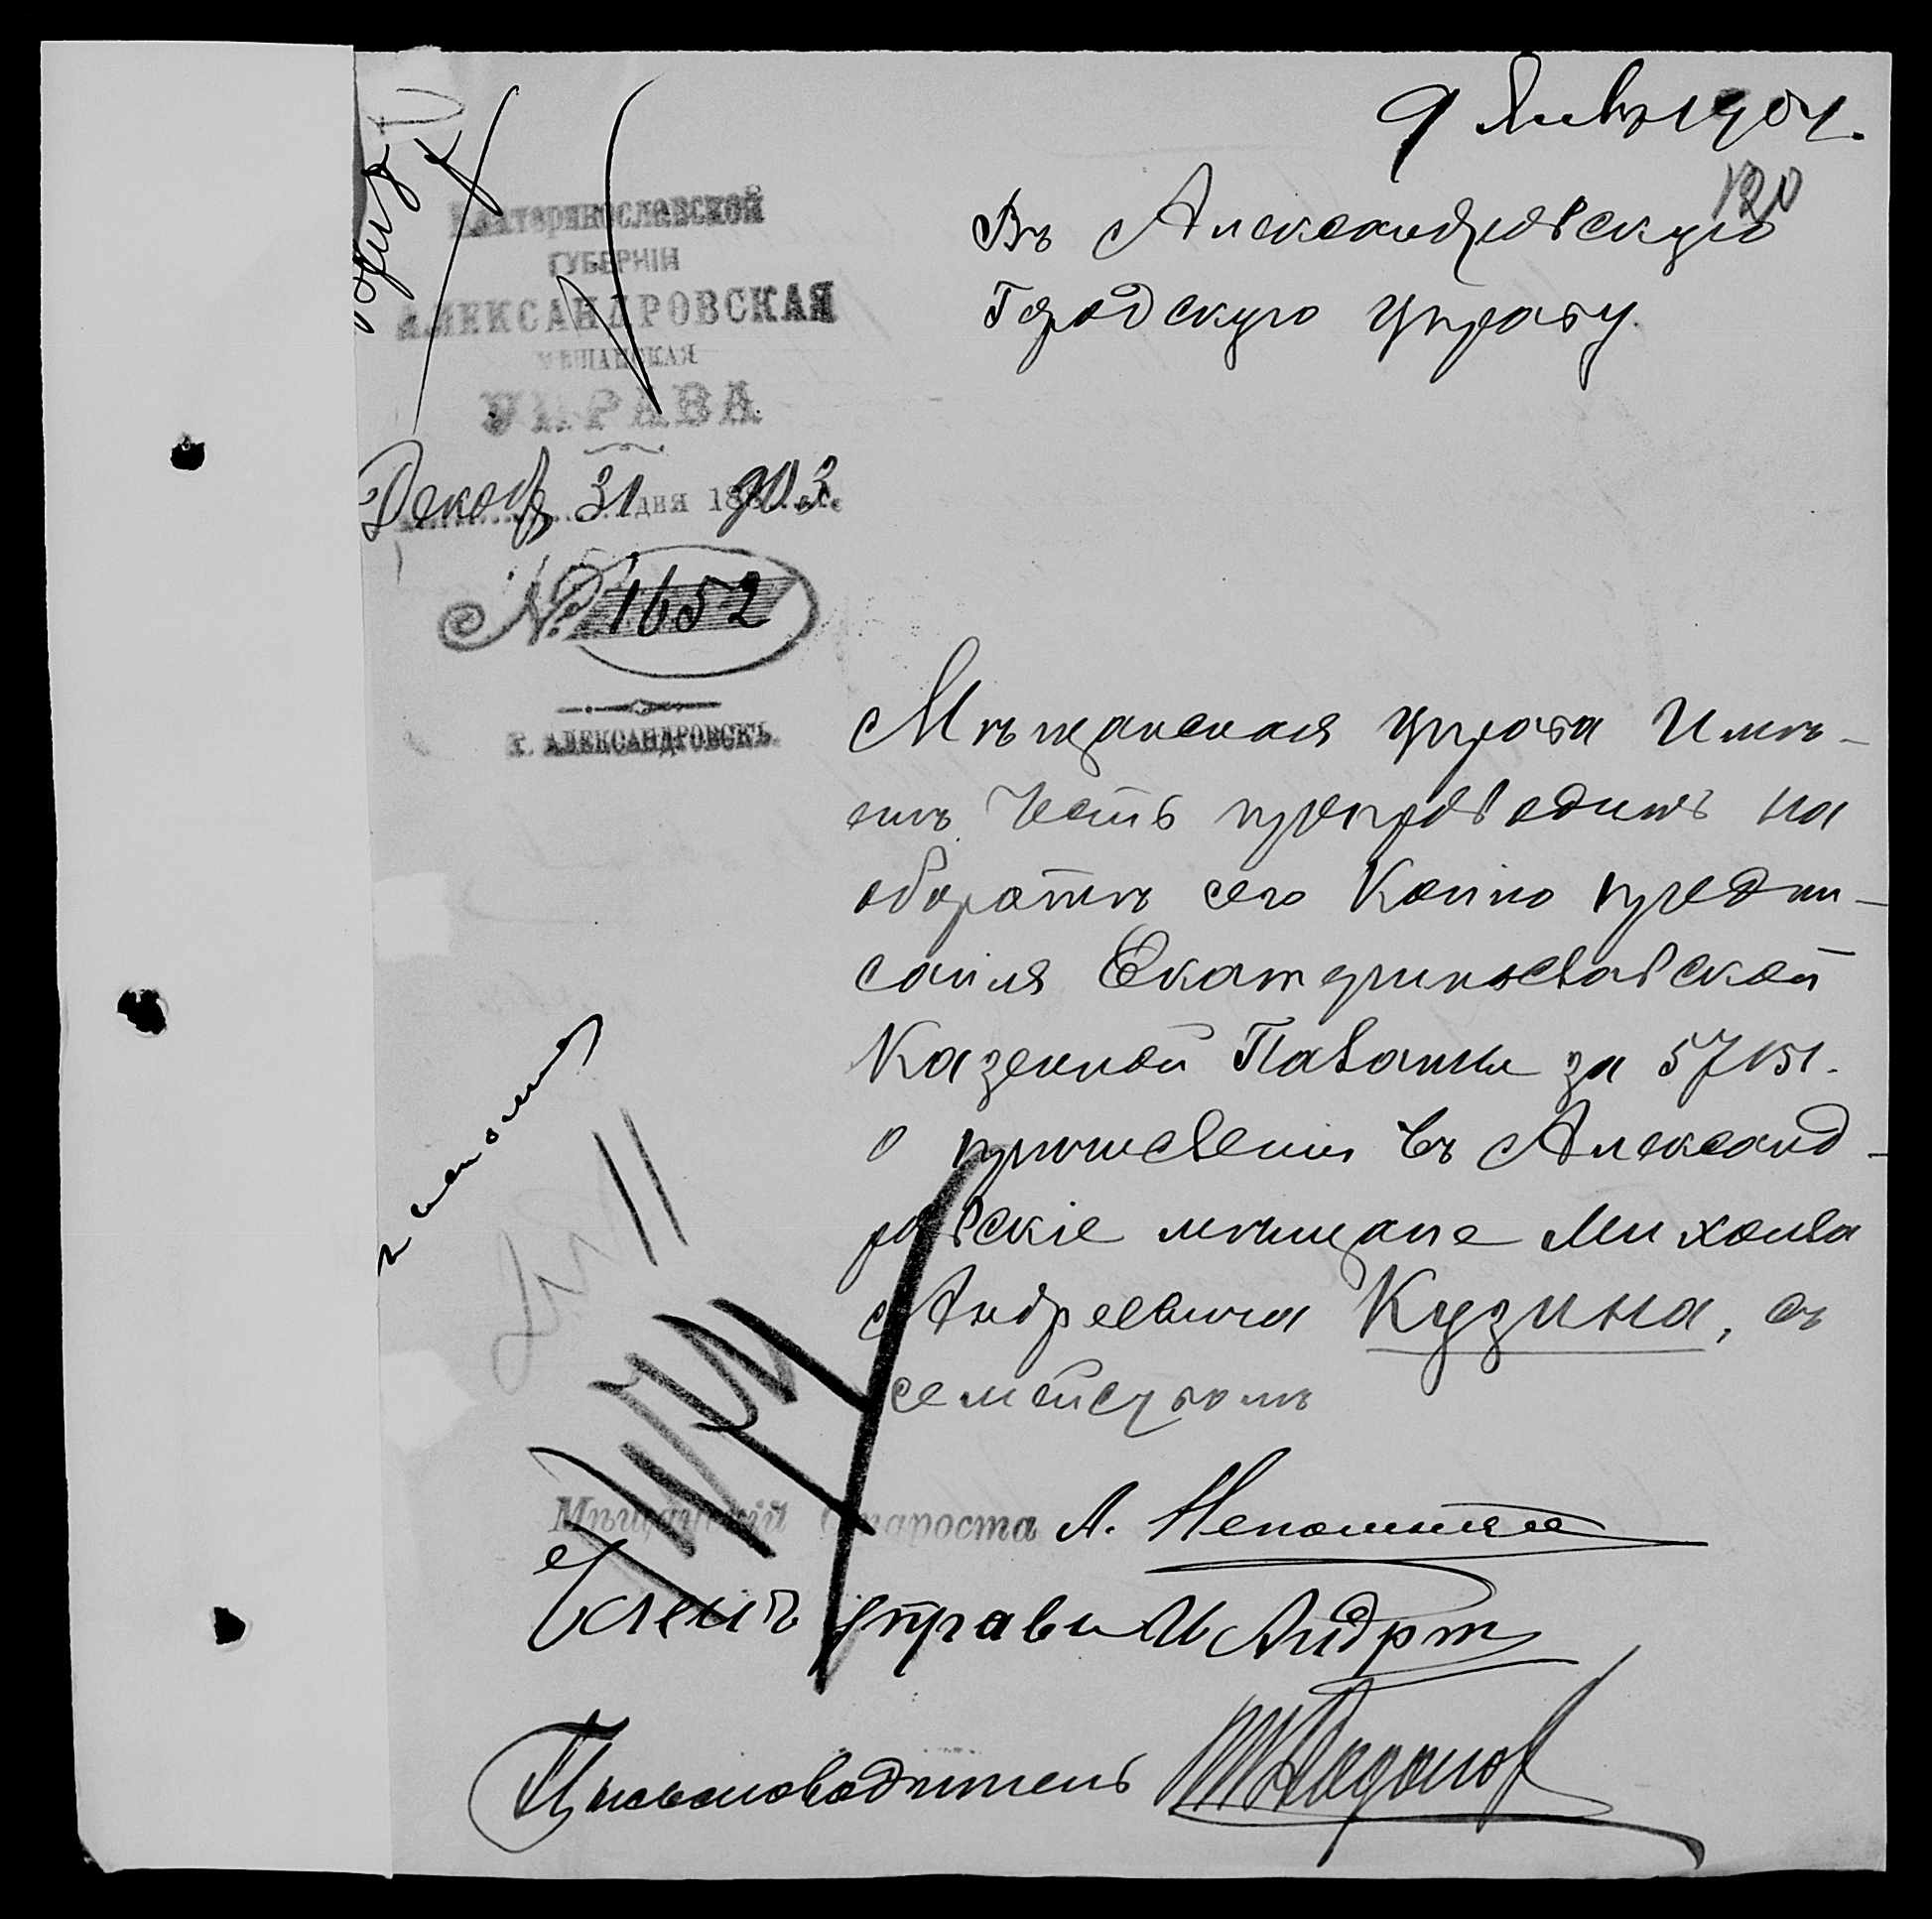 9 Янв 1904.
120
Въ Александровскую
Городскую управу.
Екатеринославской
ГУБЕРНІИ
АЛЕКСАНДРОВСКАЯ
МѢЩАНСКАЯ
УПРАВА
Декабр 31 дня 1903
№ 1652
г. АЛЕКСАНДРОВСКЪ.
Мѣщанская управа имѣ-
етъ честь препроводить на
оборотѣ сего копію предпи-
санія Екатеринославской
Казенной Палаты за
о причисленіи въ Александ-
ровскіе мѣщане Михаила
Андреевича Кузина, съ
семействомъ
Мѣщанскій Староста А.
Членъ управы И Андр
Письмоводитель